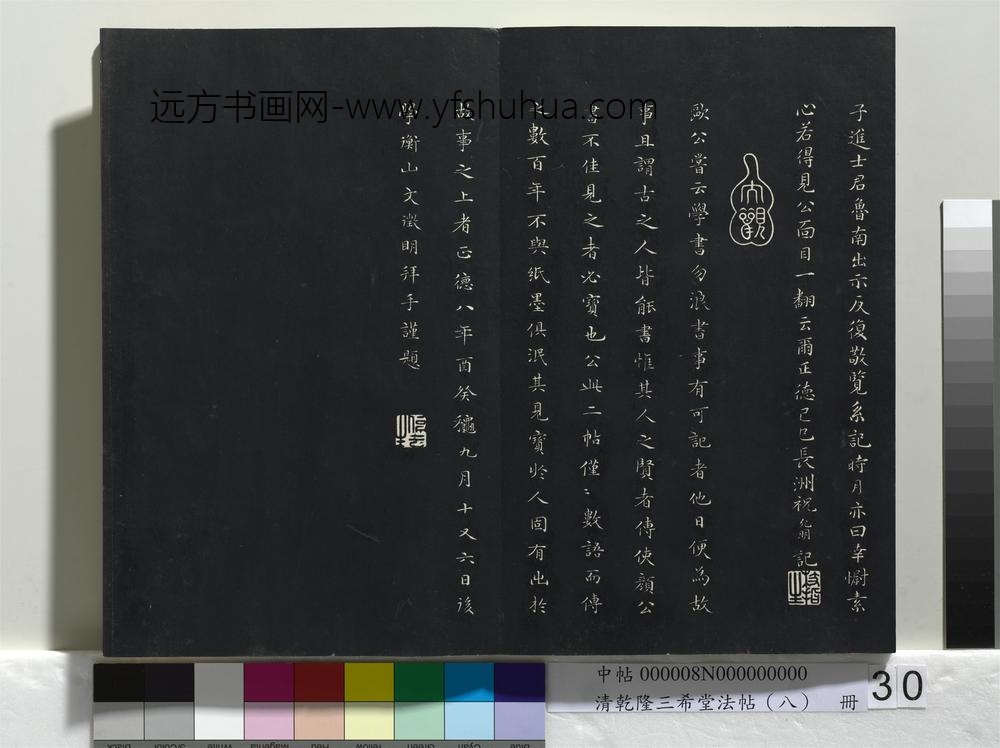 子進士君魯南出示反復敬覽系記時月亦曰幸慰素
心若得見公面目一翻云爾正德己巳長洲祝允明記
歐公嘗云學書勿浪書事有可記者他日便為故
事且謂古之人皆能書惟其人之賢者傳使顏公
書不佳見之者必寶也公此二帖僅〻數語而傳
數百年不與紙墨俱泯其見寶於人固有出於
故事之上者正德八年酉癸穐九月十又六日後
學衡山文徵明拜手謹題
远方书画网-www.yfshuhua.com
中帖 000008N000000000
清乾隆三希堂法帖（八） 冊
30
Black 3/Color White Magenta Red Yellow Green Cyan Blue